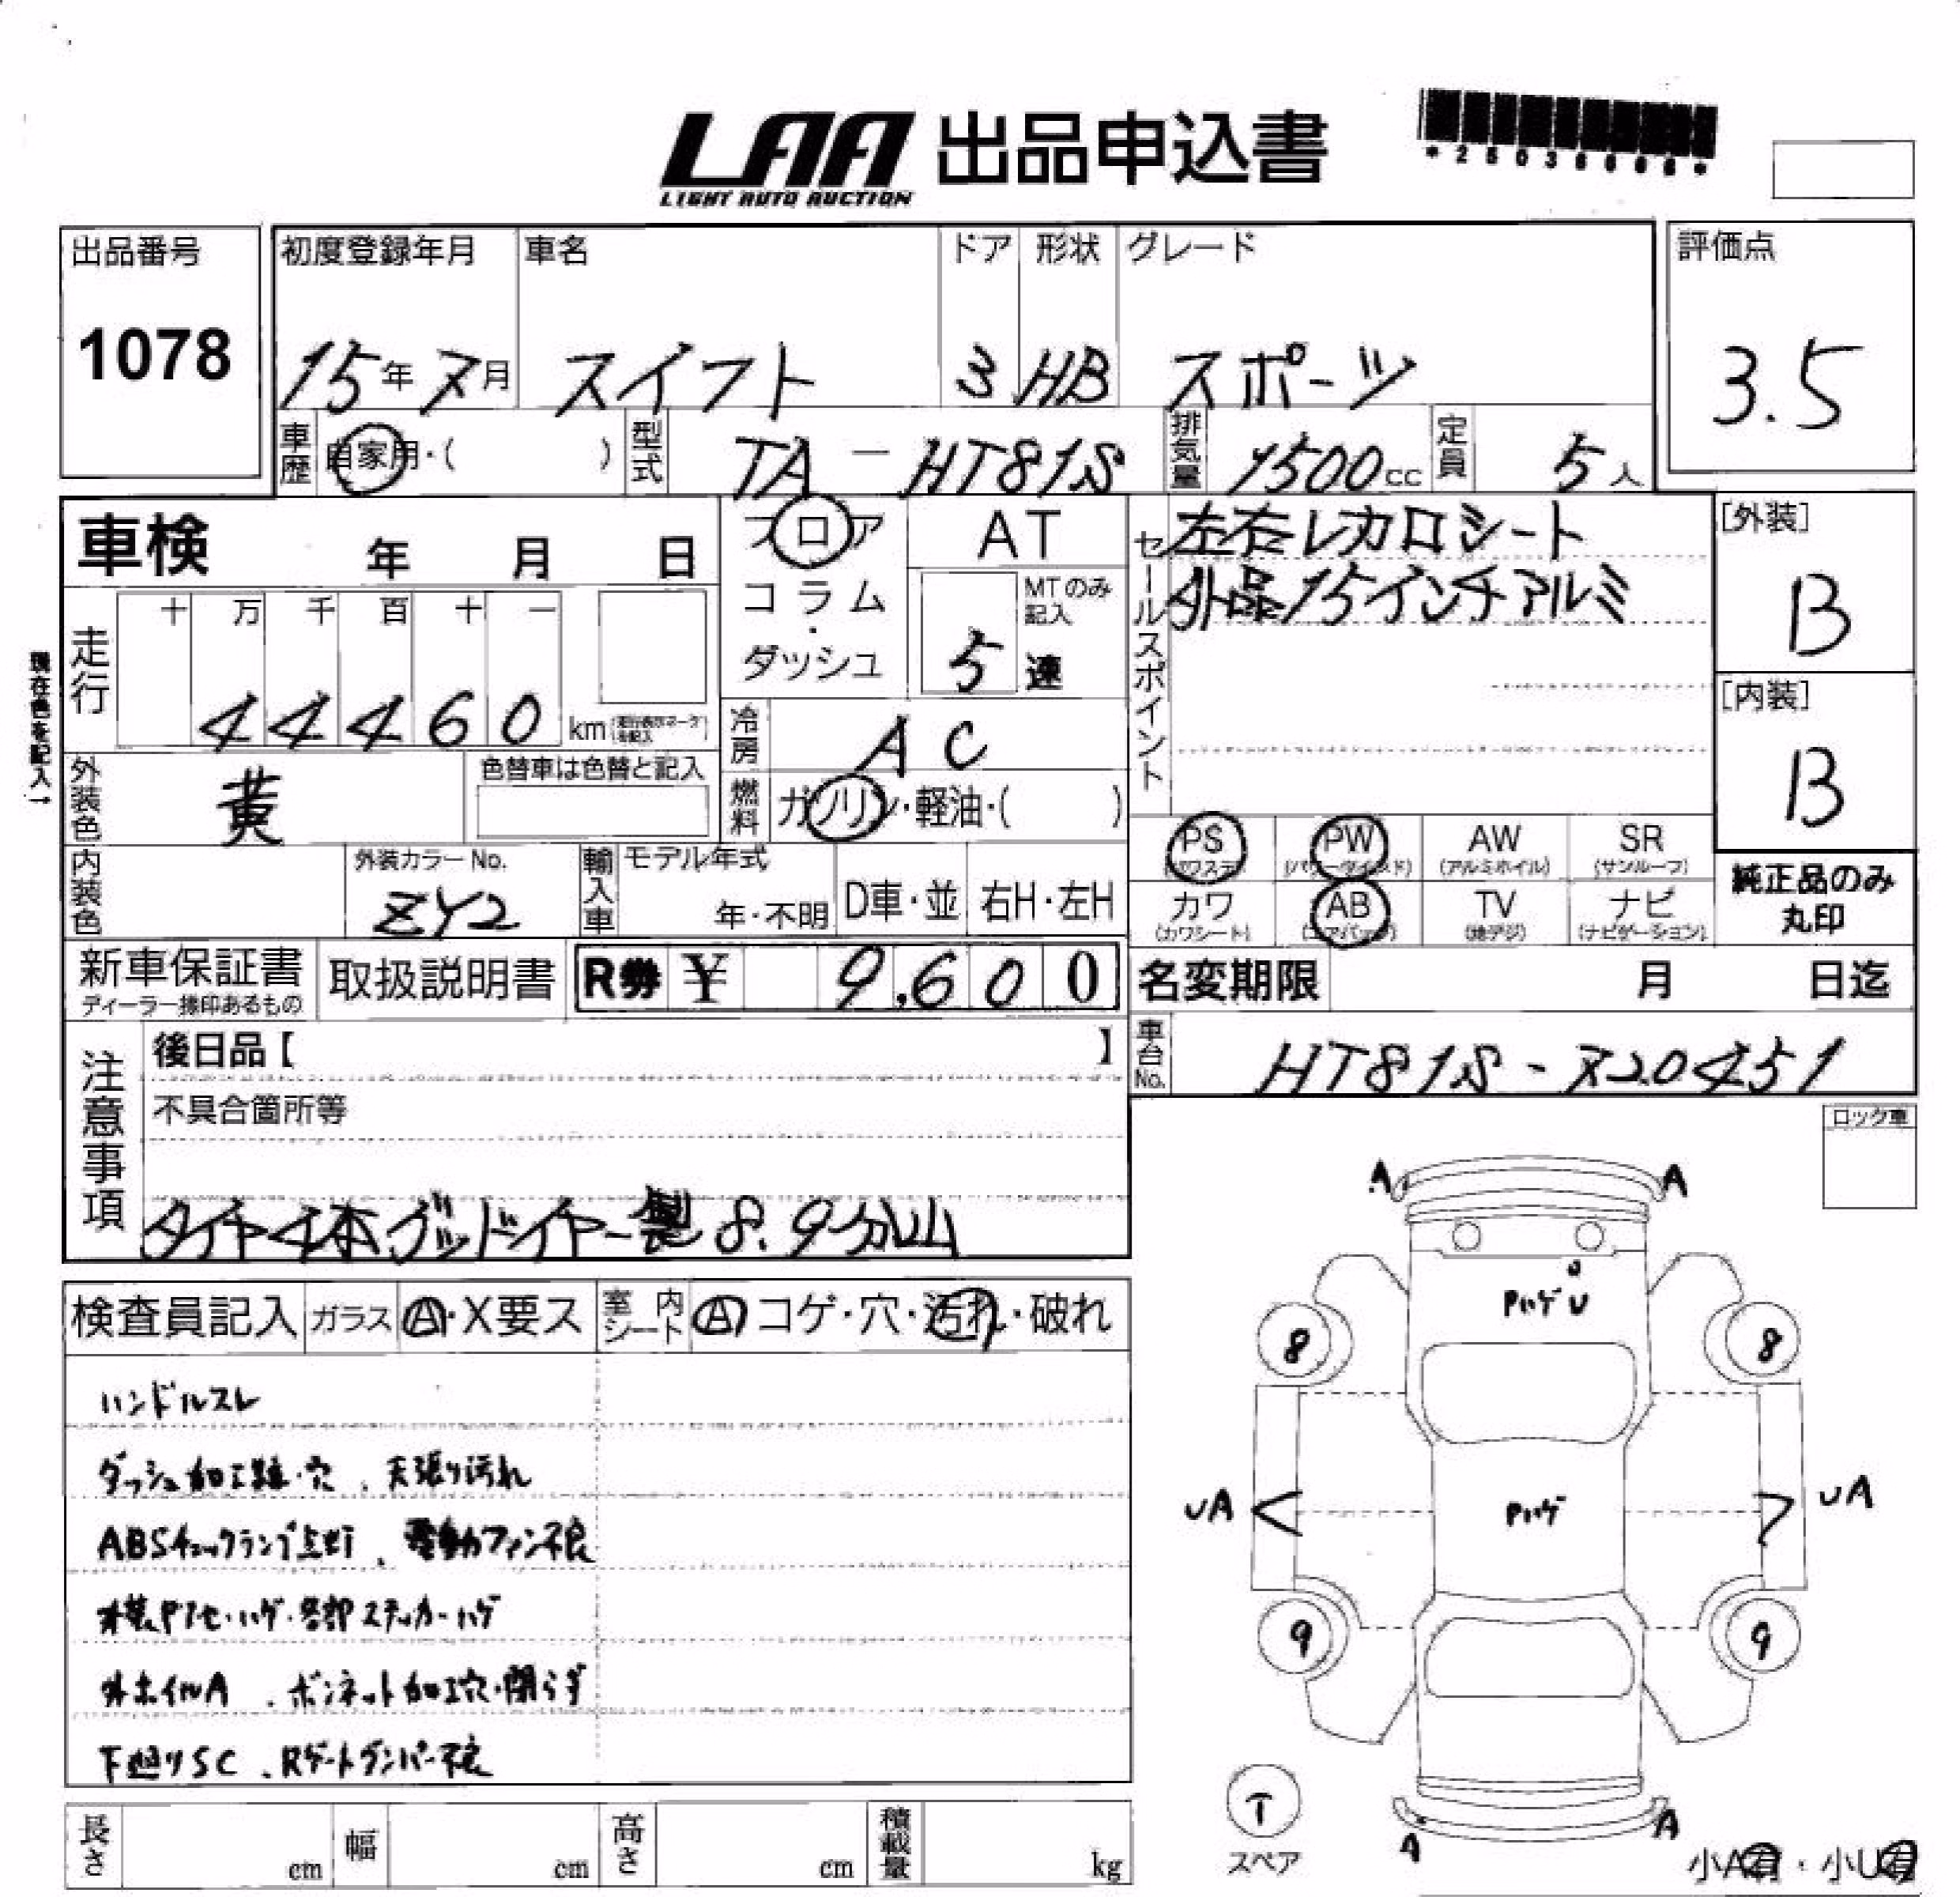 LAA 出品申込書
LIGHT AUTO AUCTION
出品番号 初度登録年月 車名 ドア 形状 グレード 評価点
1078 15年7月 スイフト 3 HB スポーツ 3.5
車歴 自家用・( ) 型式 TA-HT81S 排気量 1500cc 定員 5人
車検 年 月 日 フロア AT セールスポイント 左右レカロシート [外装]
コラム・ダッシュ MTのみ記入 5速 外品15インチアルミ B
走行 十 万 千 百 十 一
44460 km
現在色を記入→
冷房 AC [内装]
外装色 黄 色替車は色替と記入 燃料 ガソリン・軽油・( ) B
PS (パワステ) PW (パワーウインド) AW (アルミホイル) SR (サンルーフ)
内装色 外装カラーNo. ZY2 輸入車 モデル年式 年・不明 D車・並 右H・左H
カワ (カワシート) AB (エアバッグ) TV (地デジ) ナビ (ナビゲーション) 純正品のみ丸印
新車保証書 ディーラー捺印あるもの 取扱説明書 R券 ¥ 9,600 名変期限 月 日迄
注意事項 後日品【 】 車台No. HT81S-720451
不具合箇所等
ロック車
タイヤ4本グッドイヤー製 8.9分山
検査員記入 ガラス A・X要ス 室内シート A コゲ・穴・汚れ・破れ
ハンドルスレ
ダッシュ加工跡・穴、天張り汚れ
ABSチェックランプ点灯、電動ファン不良
外装ヤケ・ハゲ・各部ステッカーハゲ
外ホイルA、ボンネット加工穴・閉らず
下廻りSC、Rゲートダンパー不良
A A
PハゲU
8 8
UA Pハゲ UA
9 9
T
スペア
A A
小A有・小U有
長さ cm 幅 cm 高さ cm 積載量 kg